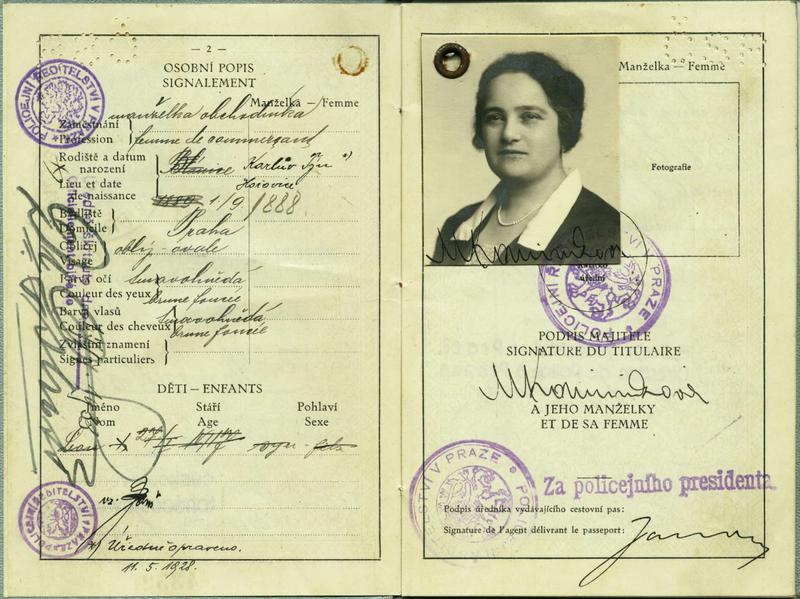 — 2 —
OSOBNÍ POPIS
SIGNALEMENT
Manželka — Femme
Zaměstnání
Profession
manželka obchodníka
femme de commerçant
Rodiště a datum
narození
Lieu et date
de naissance
Karlův Týn
Hořovice
1/9 1888
Bydliště
Domicile
Praha
Obličej
Visage
oblý - ovale
Barva očí
Couleur des yeux
tmavohnědá
brune foncée
Barva vlasů
Couleur des cheveux
tmavohnědá
brune foncée
Zvláštní znamení
Signes particuliers
DĚTI — ENFANTS
Jméno Stáří Pohlaví
Nom Age Sexe
Úředně opraveno.
11. 5. 1928.
POLICEJNÍ ŘEDITELSTVÍ V PRAZE
POLICEJNÍ ŘEDITELSTVÍ V PRAZE
Manželka — Femme
Fotografie
PODPIS MAJITELE
SIGNATURE DU TITULAIRE
A JEHO MANŽELKY
ET DE SA FEMME
Za policejního presidenta
Podpis úředníka vydávajícího cestovní pas:
Signature de l'agent délivrant le passeport: